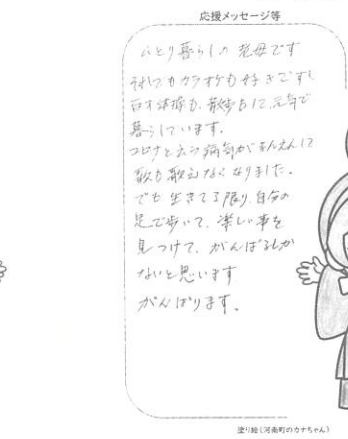 応援メッセージ等
ひとり暮らしの老母です
それでもカラオケも好きですし
百才体操も、散歩もして、元気で
暮らしています。
コロナと云う病気がまんえんして
歌も歌えなくなりました。
でも生きてる限り、自分の
足で歩いて、楽しい事を
見つけて、がんばるしか
ないと思います
がんばります。
塗り絵(河南町のカナちゃん)